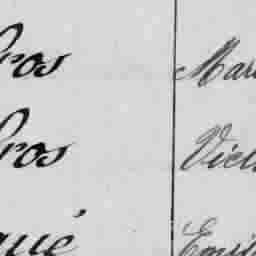 ros Mar
ros Vict
qué Emi